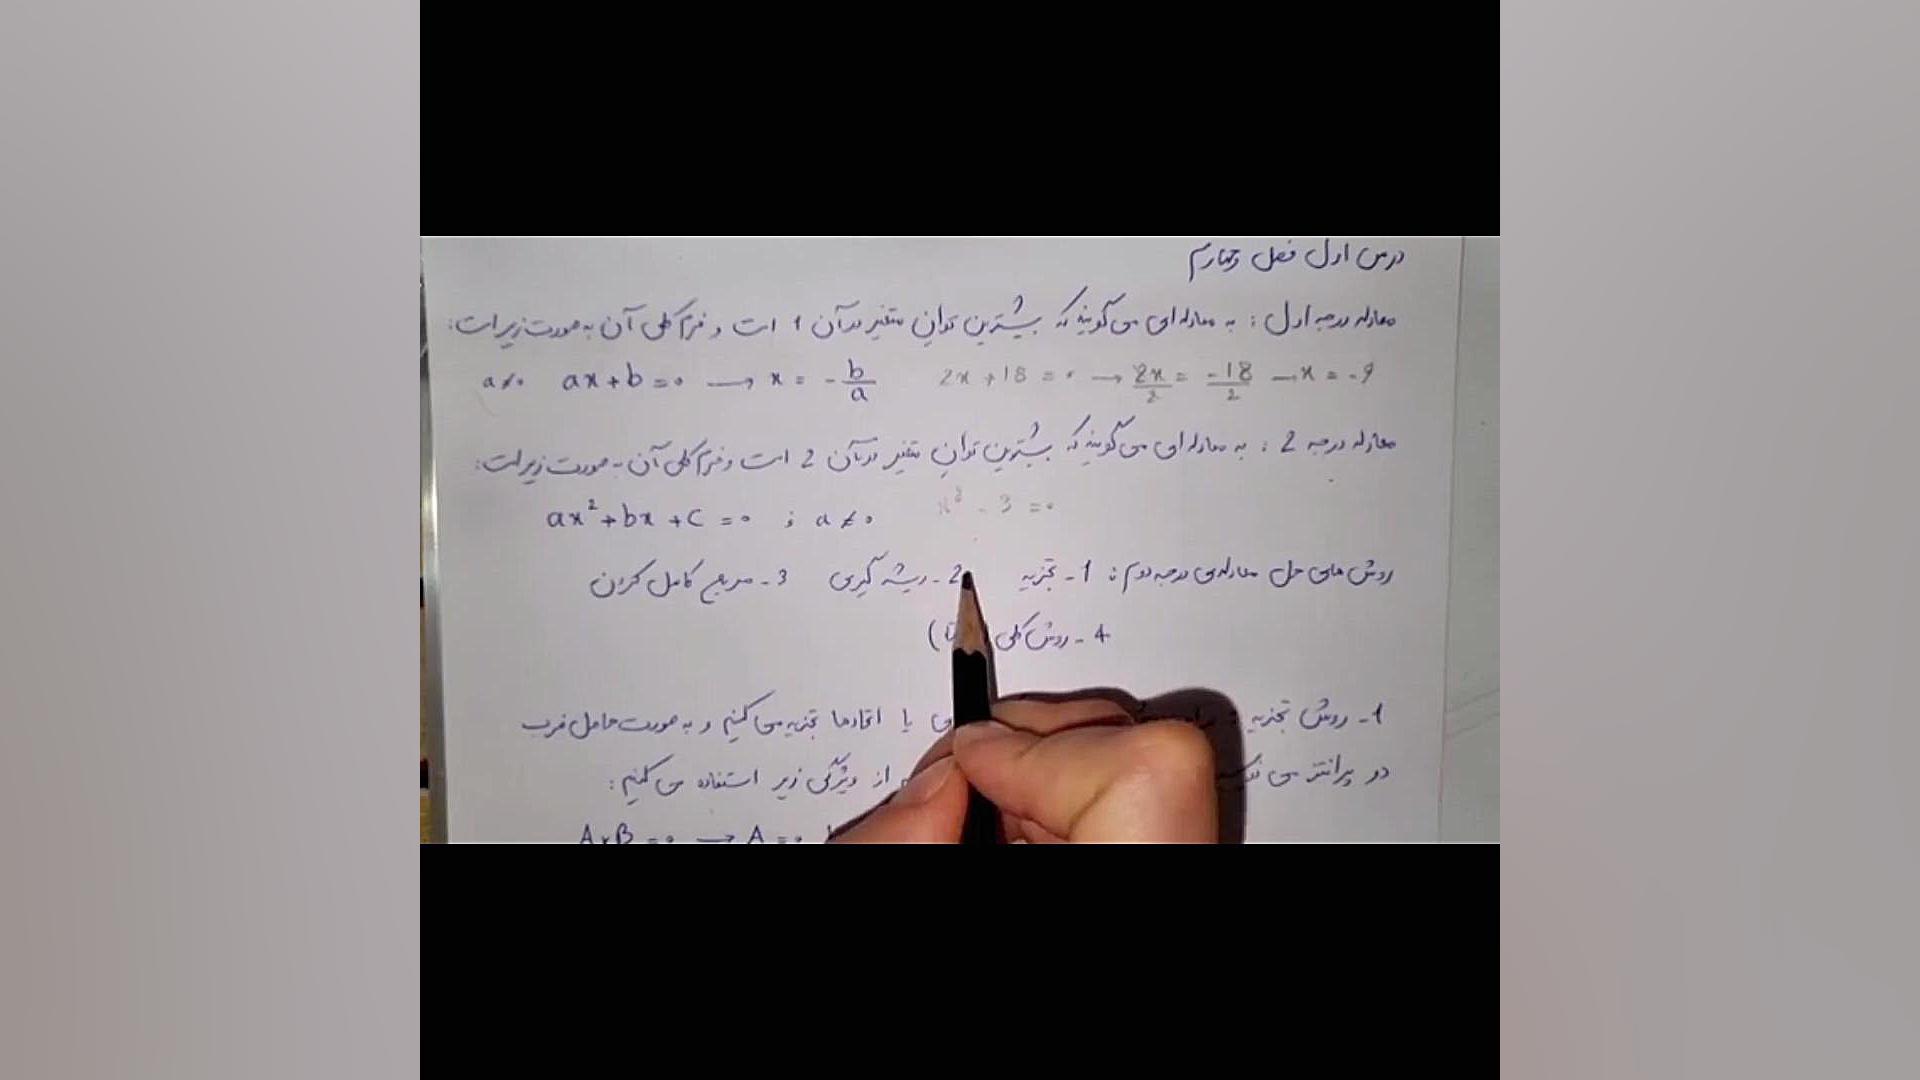 درس اول فصل چهارم
معادله درجه اول : به معادله ای می گویند که بیشترین توانِ متغیر در آن 1 است و فرم کلی آن به صورت زیر است:
a≠0 ax+b=0 → x = -b/a 2x+18=0 → 2x/2 = -18/2 → x = -9
معادله درجه 2 : به معادله ای می گویند که بیشترین توانِ متغیر در آن 2 است و فرم کلی آن به صورت زیر است:
ax²+bx+c=0 ; a≠0 x² - 3 = 0
روش های حل معادله ی درجه دوم : 1- تجزیه 2- ریشه گیری 3- مربع کامل کردن
4- روش کلی ( تا)
1- روش تجزیه : یا اتحادها تجزیه می کنیم و به صورت حاصل ضرب
دو پرانتز می از ویژگی زیر استفاده می کنیم :
A×B=0 → A=0